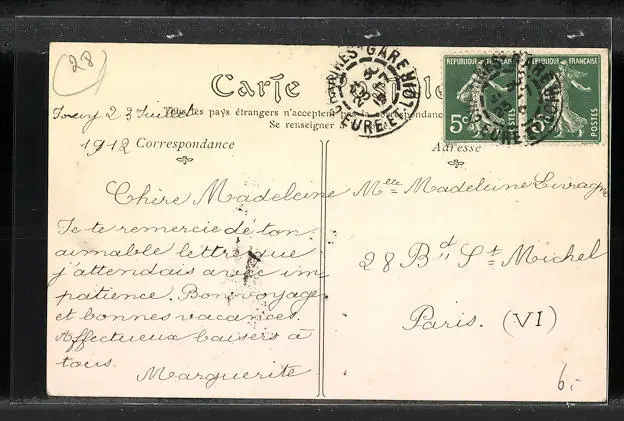 28
Carte Postale
Tous les pays étrangers n'acceptent pas la correspondance
Se renseigner
23 Juillet
1912 Correspondance
Adresse
Chère Madeleine
Je te remercie de ton
aimable lettre que
j'attendais avec im
patience. Bon voyage
et bonnes vacances.
Affectueux baisers à
tous.
Marguerite
Mlle Madeleine Livragne
28 Bd St Michel
Paris. (VI)
6.-
GARE
EURE-ET-
REPUBLIQUE FRANÇAISE
5c
POSTES
REPUBLIQUE FRANÇAISE
5c
POSTES
GARE
EURE-ET-